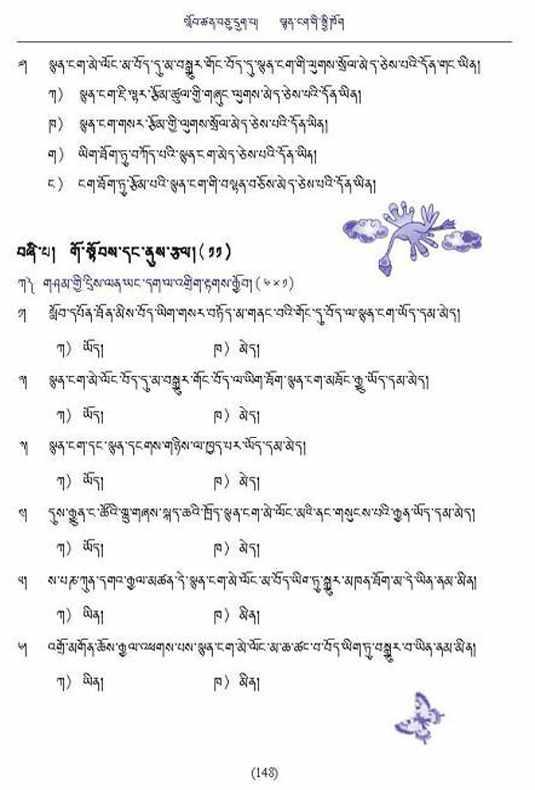 སློབ་ཚན་བཅུ་དྲུག་པ། སྙན་ངག་གི་སྤྱི་ཁོག
༡། སྙན་ངག་མེ་ལོང་མ་བོད་དུ་མ་བསྒྱུར་གོང་བོད་དུ་སྙན་ངག་གི་ལུགས་སྲོལ་མེད་ཅེས་པའི་དོན་གང་ཡིན།
ཀ) སྙན་ངག་ཇི་ལྟར་རྩོམ་ཚུལ་གྱི་གཞུང་ལུགས་མེད་ཅེས་པའི་དོན་ཡིན།
ཁ) སྙན་ངག་གསར་རྩོམ་གྱི་ལུགས་སྲོལ་མེད་ཅེས་པའི་དོན་ཡིན།
ག) ཡིག་ཐོག་ཏུ་བཀོད་པའི་སྙན་ངག་མེད་ཅེས་པའི་དོན་ཡིན།
ང) ངག་ཐོག་ཏུ་རྩོམ་པའི་སྙན་ངག་གི་བསྟན་བཅོས་མེད་ཅེས་པའི་དོན་ཡིན།
བཞི་པ། གོ་སྟོབས་དང་ནུས་རྩལ།(༡༡)
ཀ༽ གཤམ་གྱི་དྲིས་ལན་ཡང་དག་ལ་འགྲིག་རྟགས་རྒྱོབ།(༦×༡)
༡། སློབ་དཔོན་ཐོན་མིས་བོད་ཡིག་གསར་བཏོད་མ་གནང་བའི་གོང་དུ་བོད་ལ་སྙན་ངག་ཡོད་དམ་མེད།
ཀ) ཡོད། ཁ) མེད།
༢། སྙན་ངག་མེ་ལོང་བོད་དུ་མ་བསྒྱུར་གོང་བོད་ལ་ཡིག་ཐོག་སྙན་ངག་མཐོང་རྒྱུ་ཡོད་དམ་མེད།
ཀ) ཡོད། ཁ) མེད།
༣། སྙན་ངག་དང་སྙན་དངགས་གཉིས་ལ་ཁྱད་པར་ཡོད་དམ་མེད།
ཀ) ཡོད། ཁ) མེད།
༤། དུས་རྒྱུན་ང་ཚོའི་གླུ་གཞས་སྐད་ཆའི་ཁྲོད་སྙན་ངག་མེ་ལོང་མའི་ནང་གསུངས་པའི་རྒྱན་ཡོད་དམ་མེད།
ཀ) ཡོད། ཁ) མེད།
༥། ས་པཎ་ཀུན་དགའ་རྒྱལ་མཚན་དེ་སྙན་ངག་མེ་ལོང་མ་བོད་ཡིག་ཏུ་སྒྱུར་མཁན་ཐོག་མ་དེ་ཡིན་ནམ་མིན།
ཀ) ཡིན། ཁ) མིན།
༦། འགྲོ་མགོན་ཆོས་རྒྱལ་འཕགས་པས་སྙན་ངག་མེ་ལོང་མ་ཆ་ཚང་བ་བོད་ཡིག་ཏུ་བསྒྱུར་བ་ཡིན་ནམ་མིན།
ཀ) ཡིན། ཁ) མིན།
(148)